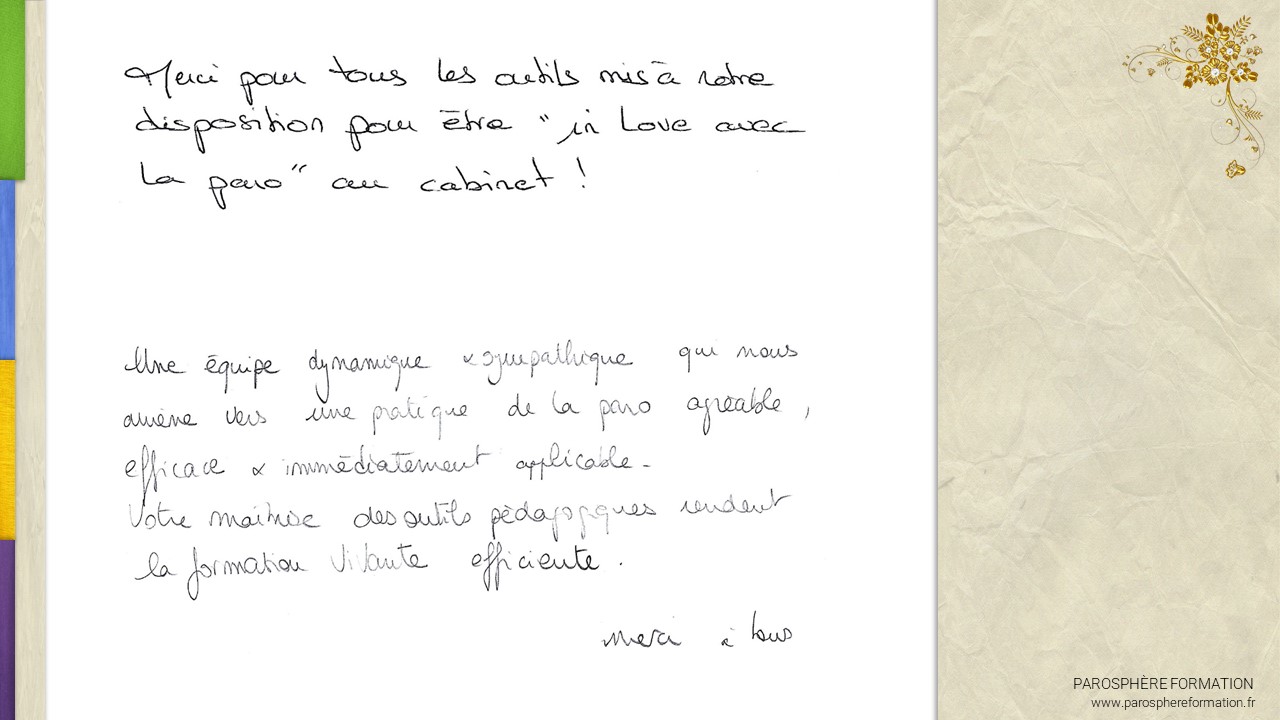 Merci pour tous les outils mis à notre
disposition pour être "in Love avec
la paro" au cabinet !
Une équipe dynamique & sympathique qui nous
amène vers une pratique de la paro agréable,
efficace & immédiatement applicable.
Votre maîtrise des outils pédagogiques rendent
la formation vivante efficiente.
merci à tous
PAROSPHÈRE FORMATION
www.parosphereformation.fr